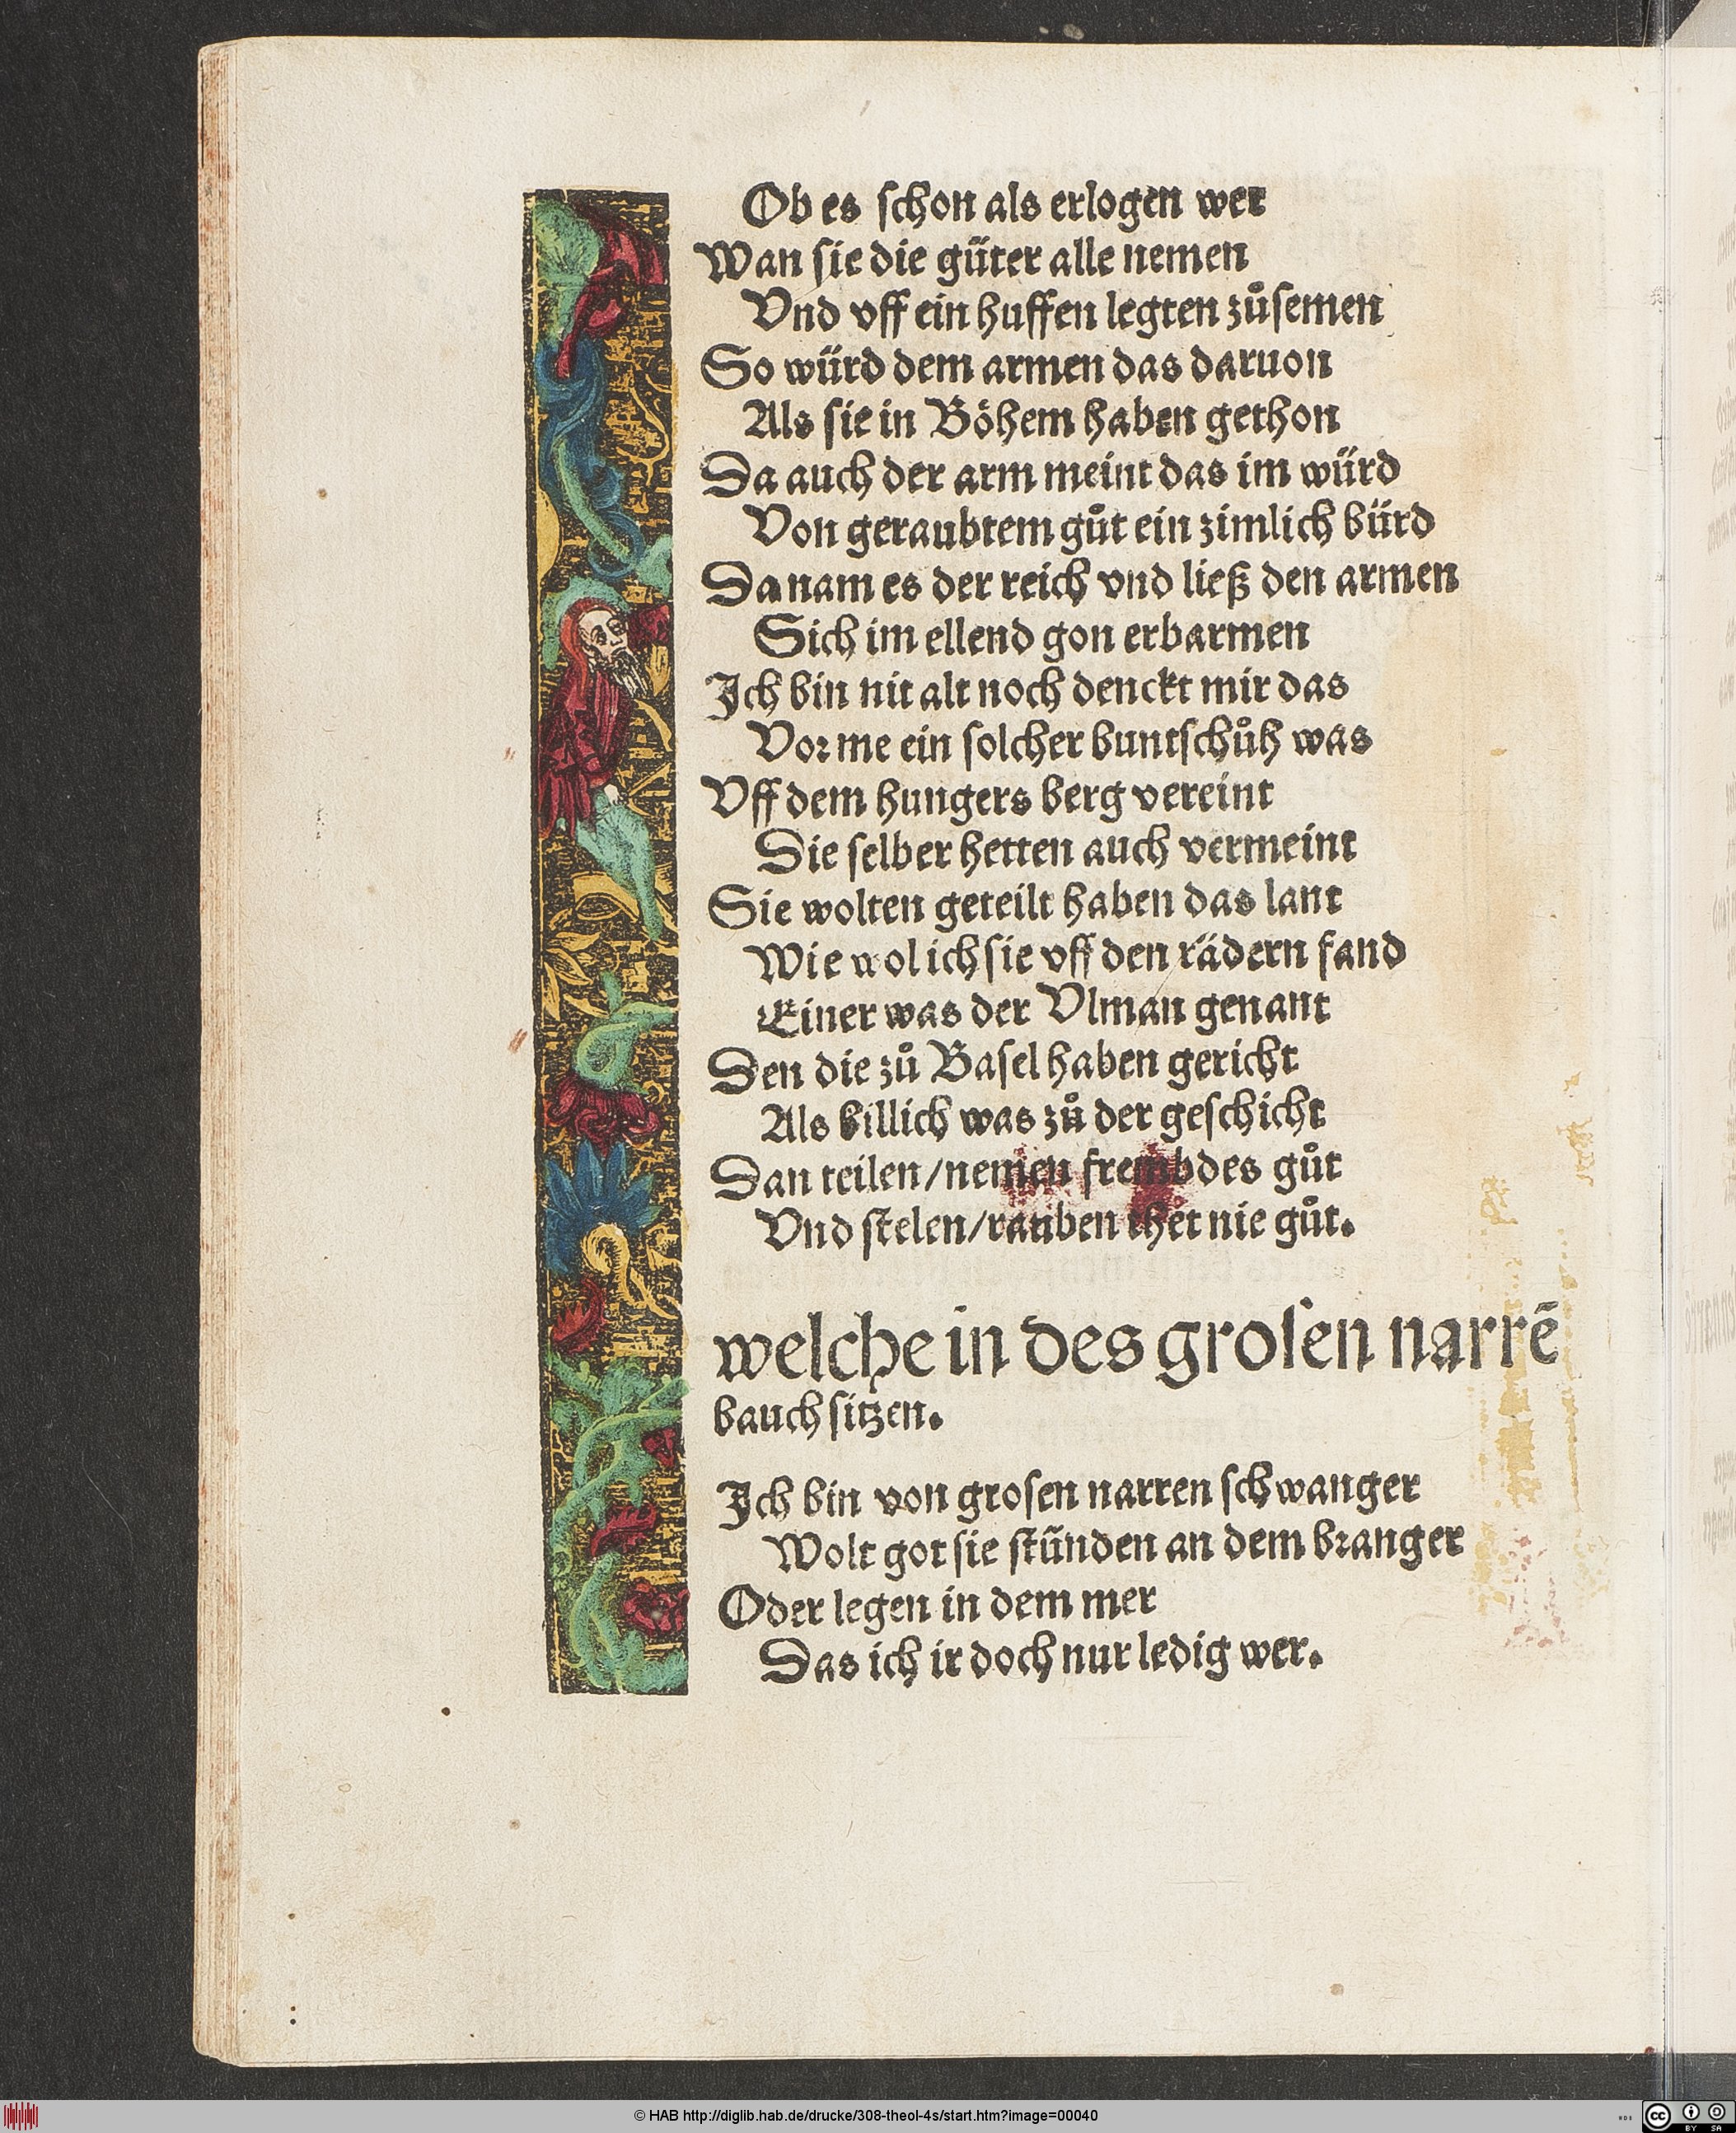 Ob es schon als erlogen wer
Wan sie die güter alle nemen
Vnd vff ein huffen legten zůsemen
So würd dem armen das daruon
Als sie in Böhem haben gethon
Da auch der arm meint das im würd
Von geraubtem gůt ein zimlich bürd
Da nam es der reich vnd ließ den armen
Sich im ellend gon erbarmen
Ich bin nit alt noch denckt mir das
Vor me ein solcher buntschůh was
Vff dem hungers berg vereint
Die selber hetten auch vermeint
Sie wolten geteilt haben das lant
Wie wol ich sie vff den rädern fand
Einer was der Vlman genant
Den die zů Basel haben gericht
Als billich was zů der geschicht
Dan teilen/nemen frembdes gůt
Vnd stelen/rauben thet nie gůt.
welche in des grosen narrē
bauch sitzen.
Ich bin von grosen narren schwanger
Wolt got sie stünden an dem branger
Oder legen in dem mer
Das ich ir doch nur ledig wer.
© HAB http://diglib.hab.de/drucke/308-theol-4s/start.htm?image=00040
cc BY SA